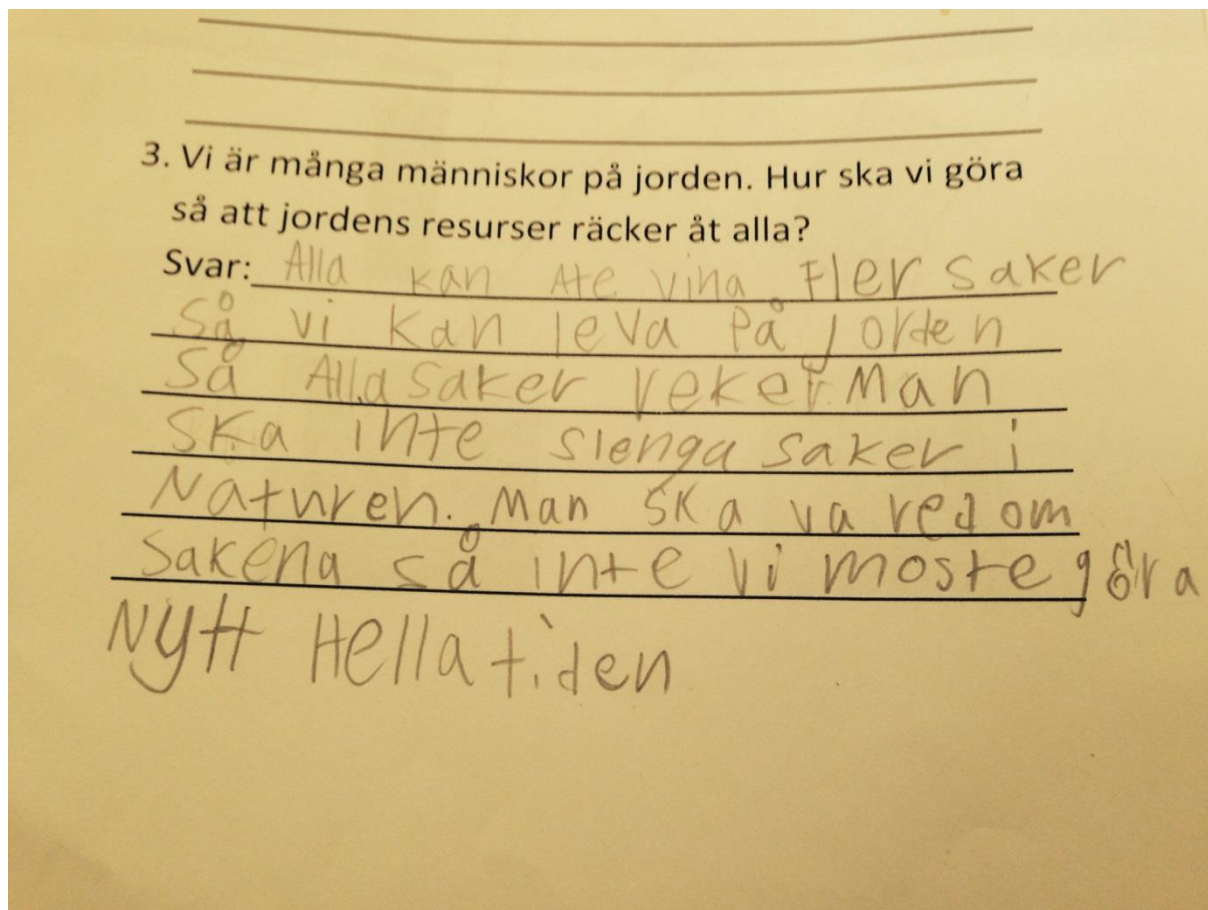 3. Vi är många människor på jorden. Hur ska vi göra
så att jordens resurser räcker åt alla?
Svar: Alla kan Ate vina Fler saker
Så vi kan leva På jorden
Så Alla saker reker. Man
Ska inte slenga saker i
Naturen. Man Ska va red om
Sakena så inte vi moste göra
Nytt Hella tiden